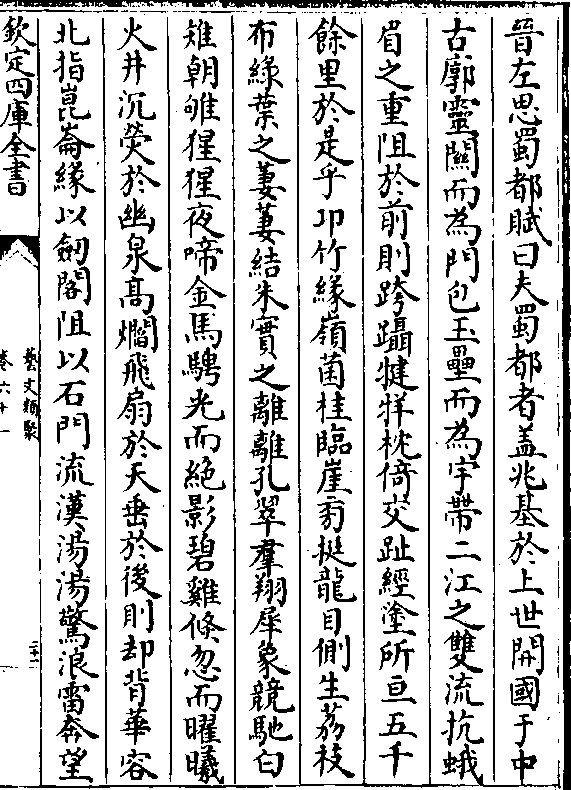 晉左思蜀都賦曰夫蜀都者盖兆基於上世開國于中
古廓靈關而為門包玉壘而為宇帶二江之雙流抗蛾
眉之重阻於前則跨躡犍牂枕倚交趾經塗所亘五千
餘里於是乎卭竹緣嶺菌桂臨崖旁挺龍目側生荔枝
布綠葉之萋萋結朱實之離離孔翠羣翔犀象競馳白
雉朝雊猩猩夜啼金馬騁光而絕影碧雞倏忽而曜曦
火井沉熒於幽泉高爓飛扇於天垂於後則却背華容
北指崑崙緣以劍閣阻以石門流漢湯湯驚浪雷奔望
欽定四庫全書
藝文類聚
卷六十一